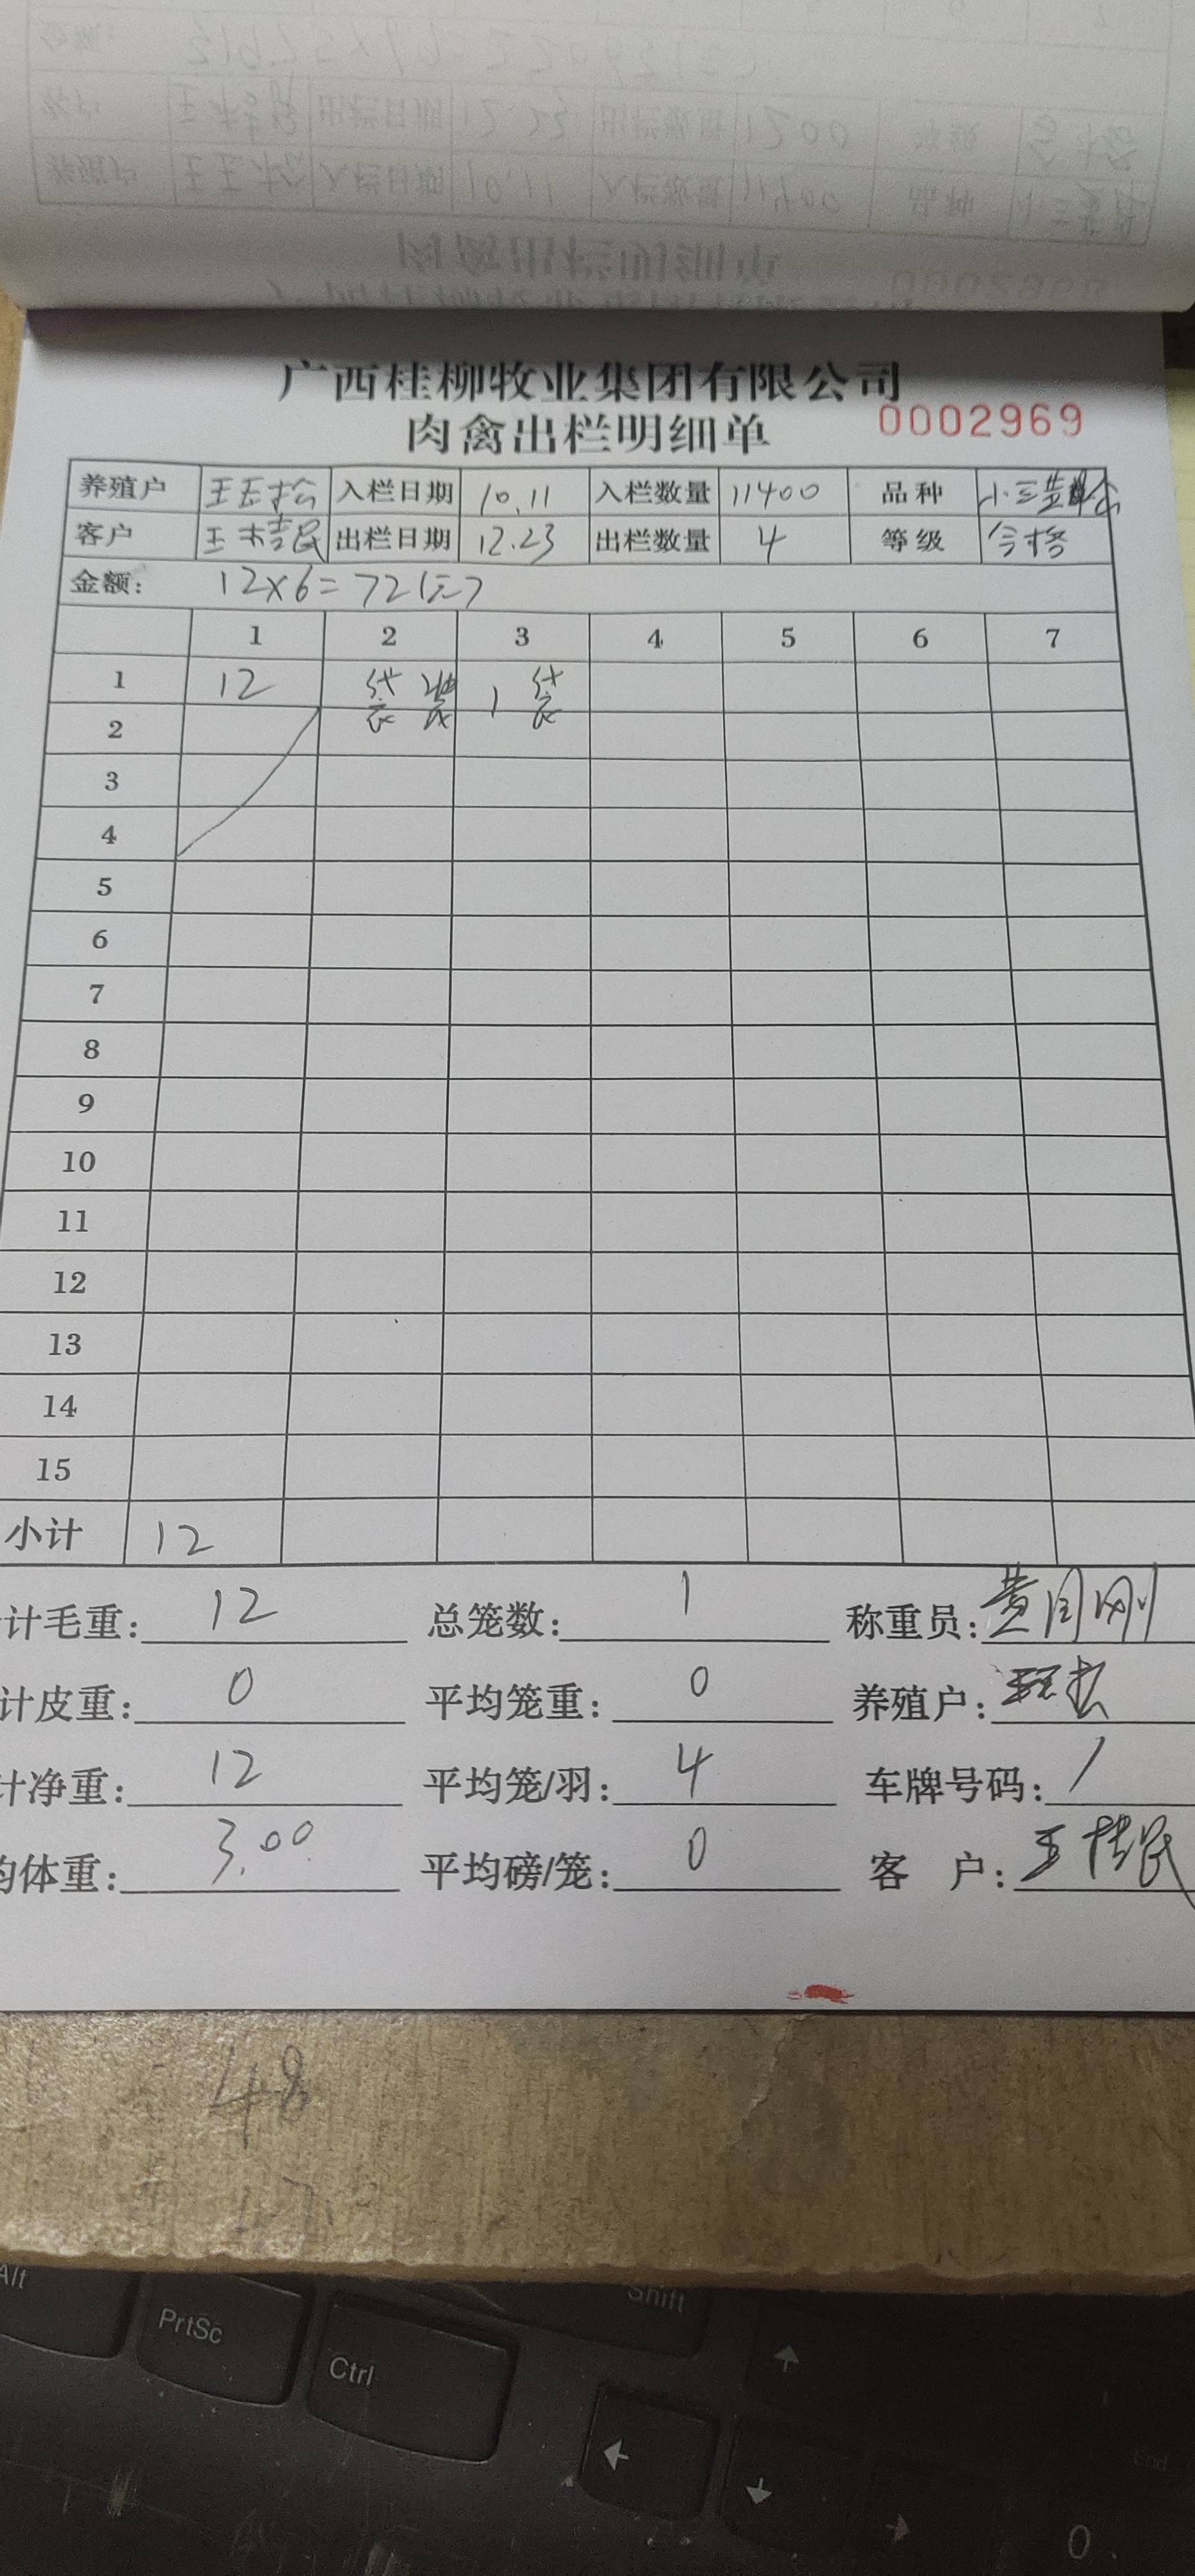 广西桂柳牧业集团有限公司
肉禽出栏明细单 0002969
养殖户 王玉松 入栏日期 10.11 入栏数量 11400 品种 小三黄
客户 王桂民 出栏日期 12.23 出栏数量 4 等级 合格
金额: 12×6=72(元)
1 2 3 4 5 6 7
1 12 袋装 1袋
2
3
4
5
6
7
8
9
10
11
12
13
14
15
小计 12
计毛重: 12 总笼数: 1 称重员: 黄国刚
计皮重: 0 平均笼重: 0 养殖户: 王玉松
计净重: 12 平均笼/羽: 4 车牌号码: /
均体重: 3.00 平均磅/笼: 0 客 户: 王桂民
48
17
Alt
PrtSc
Ctrl
Shift
0